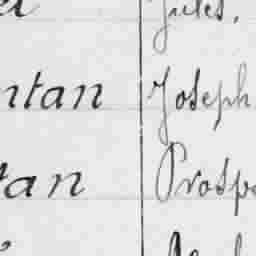 Jules,
ntan Joseph
tan Prosp